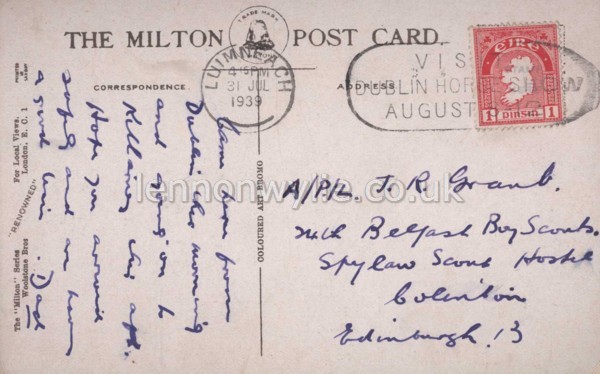 TRADE MARK
THE MILTON POST CARD.
CORRESPONDENCE.
ADDRESS
LUIMNEACH
4 15 PM
31 JUL
1939
VIS
DUBLIN HORSE SHOW
AUGUST
ÉIRE
1 PINGIN 1
Came here from
Dublin this morning
and going on to
Killarney this aft.
Hope you arrived
safely and are having
a good time. Dad
A/P/L. J. R. Grant.
74th Belfast Boy Scouts.
Spylaw Scout Hostel
Colinton
Edinburgh 13
COLOURED ART PROMO
The "Milton" Series
Woolstone Bros
"RENOWNED"
For Local Views.
London, E.C. 1
lennonwylie.co.uk